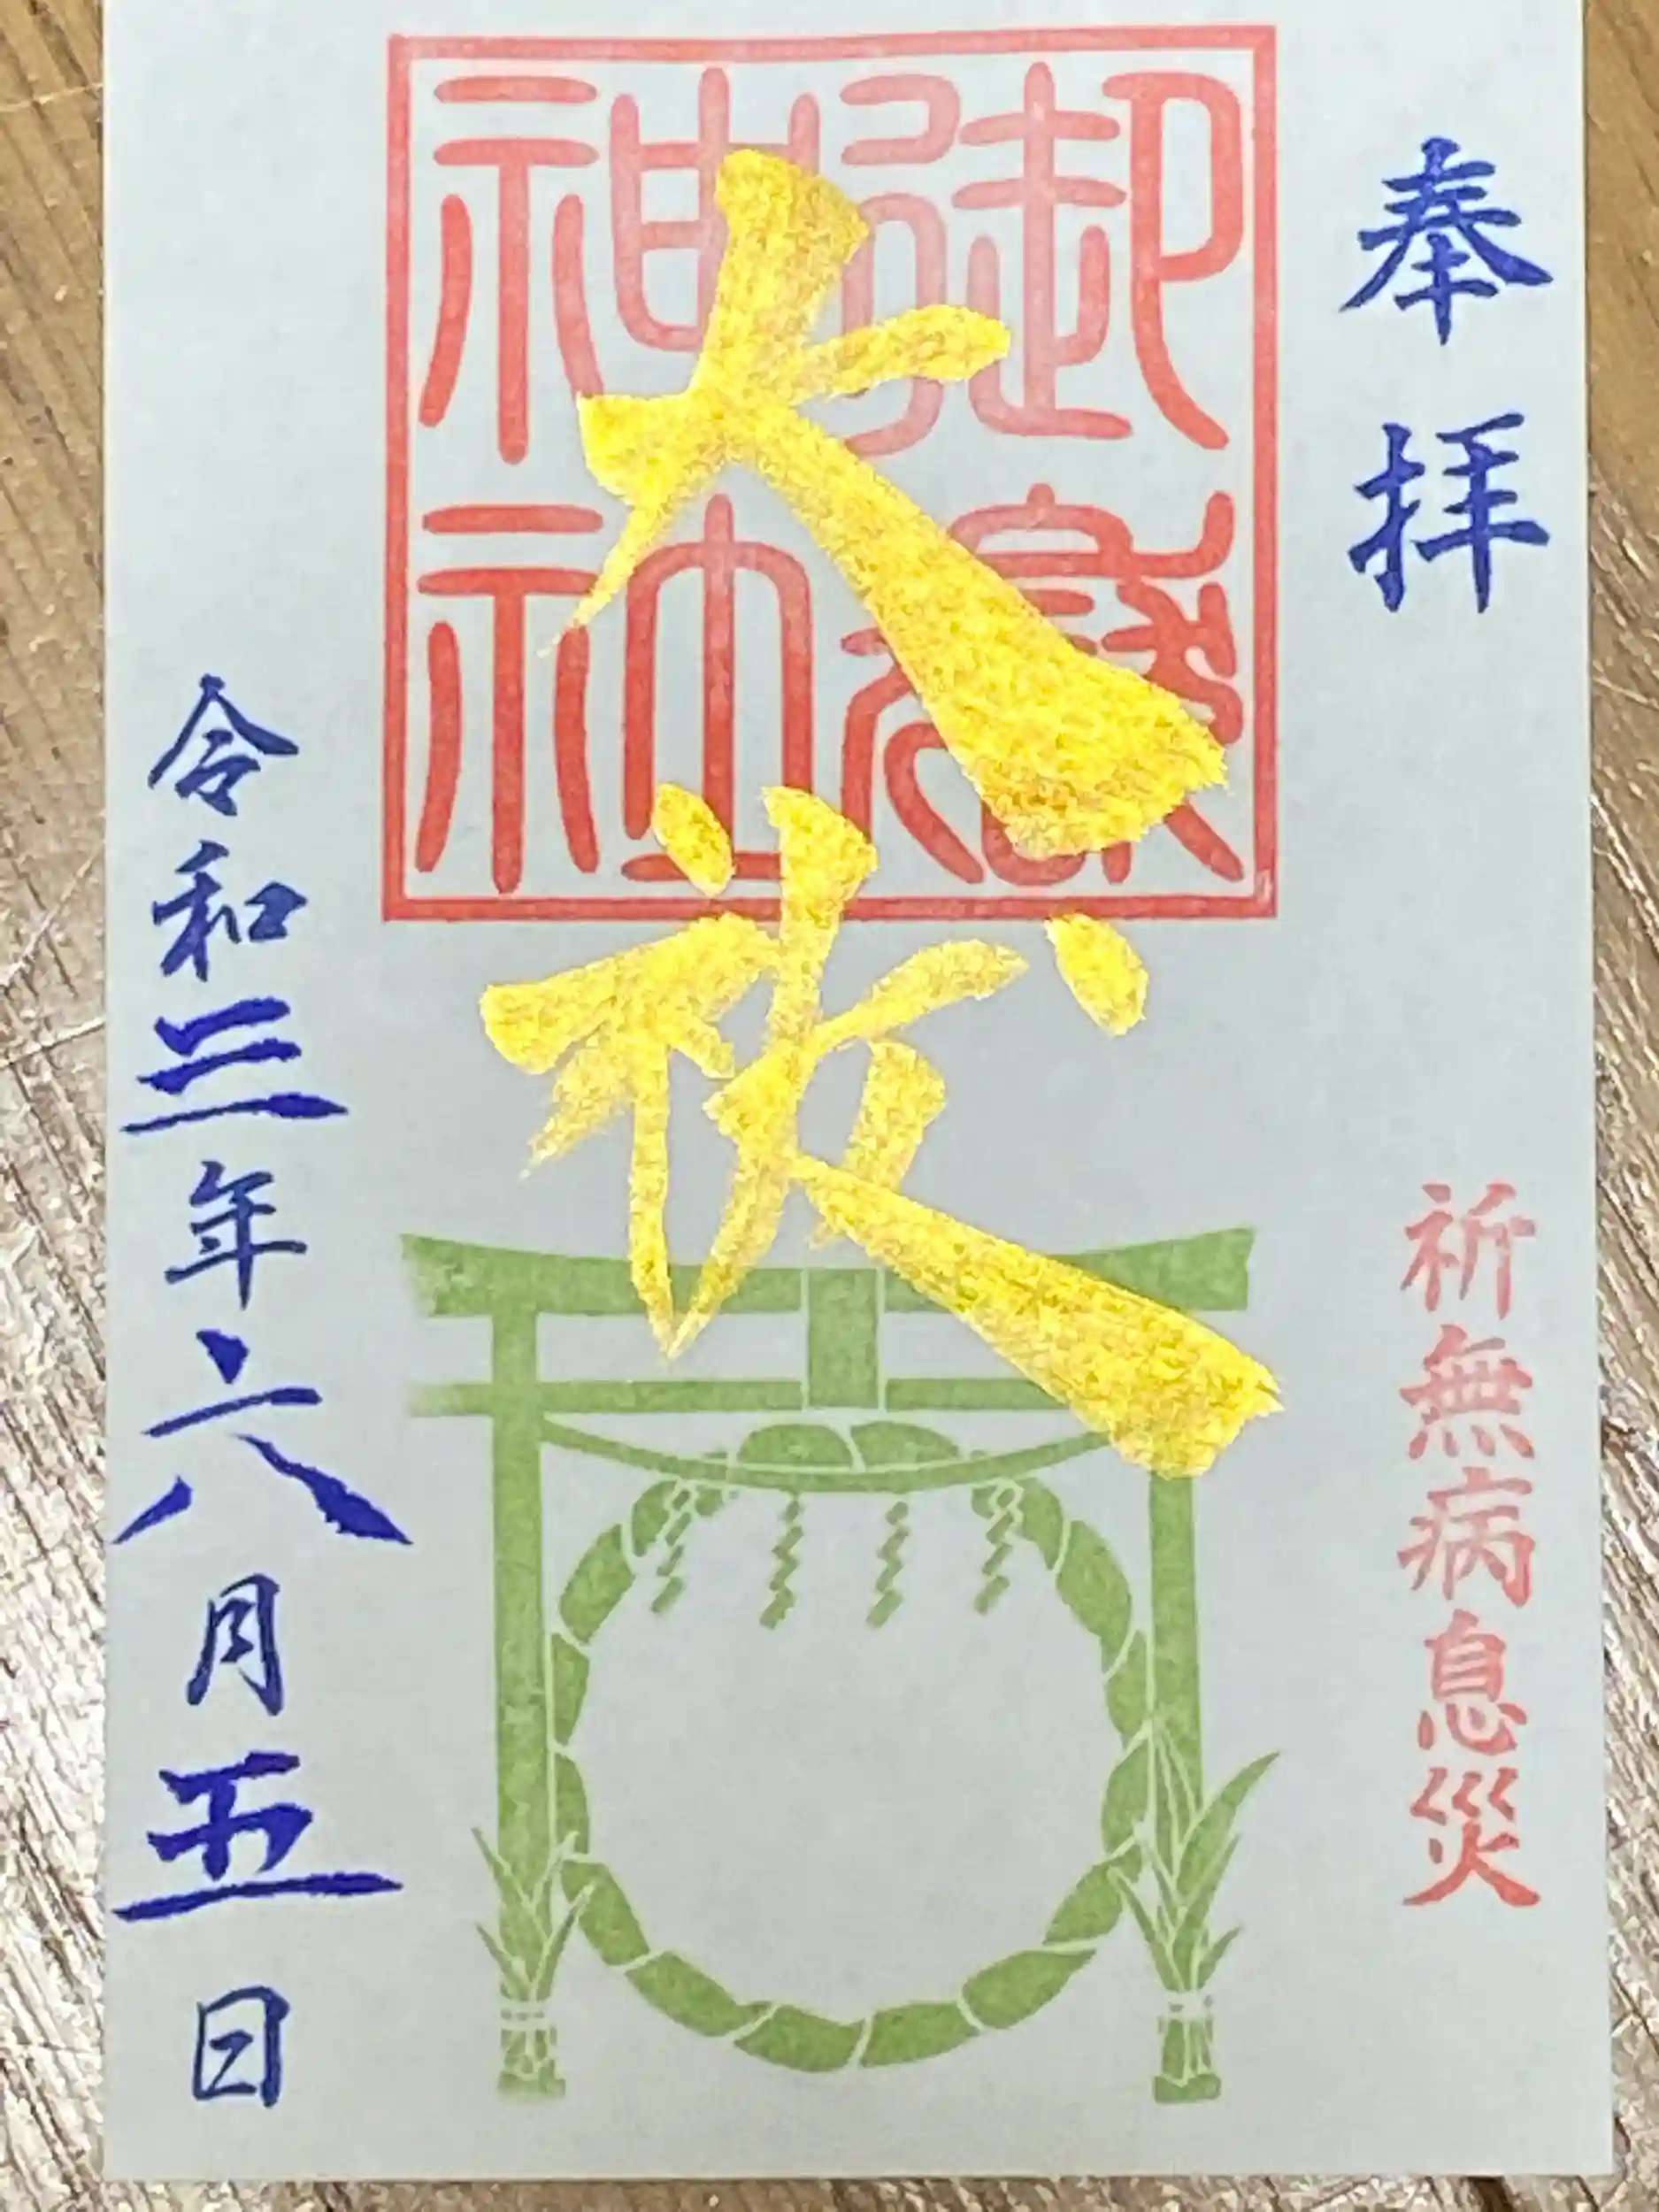 奉拝
祈無病息災
大祓
御
神社
令和三年六月五日